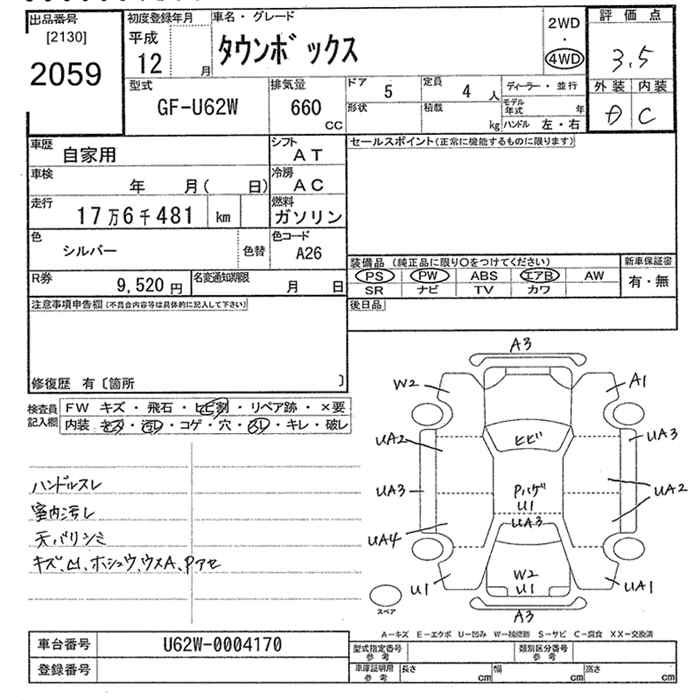 出品番号
[2130]
2059
初度登録年月
平成
12 月
車名・グレード
タウンボックス
2WD
・
4WD
評価点
3.5
外装 内装
D C
型式
GF-U62W
排気量
660
CC
ドア 5
定員 4 人
形状
積載 kg
ディーラー・並行
モデル年式 年
ハンドル 左・右
車歴
自家用
シフト
AT
車検
年 月( 日)
冷房
AC
走行
17万6千481 km
燃料
ガソリン
色
シルバー
色替
色コード
A26
R券
9,520円
名変通知期限
月 日
セールスポイント(正常に機能するものに限ります)
装備品 (純正品に限り○をつけてください)
PS PW ABS エアB AW
SR ナビ TV カワ
新車保証書
有・無
後日品
注意事項申告欄(不具合内容等は具体的に記入して下さい)
修復歴 有〔箇所 〕
検査員
記入欄
FW キズ・飛石・ヒビ割・リペア跡・×要
内装 キズ・汚レ・コゲ・穴・スレ・キレ・破レ
ハンドルスレ
室内汚レ
天バリシミ
キズ、凹、ホシュウ、ウスA、Pアセ
A3
W2
A1
UA2
ヒビ
UA3
UA3
Pハゲ
U1
UA2
UA3
UA4
W2
U1
U1
UA1
スペア
A3
A-キズ E-エクボ U-凹み W-補修跡 S-サビ C-腐食 XX-交換済
車台番号
U62W-0004170
登録番号
型式指定番号
参考
類別区分番号
参考
車庫証明用
参考
長さ cm
幅 cm
高さ cm